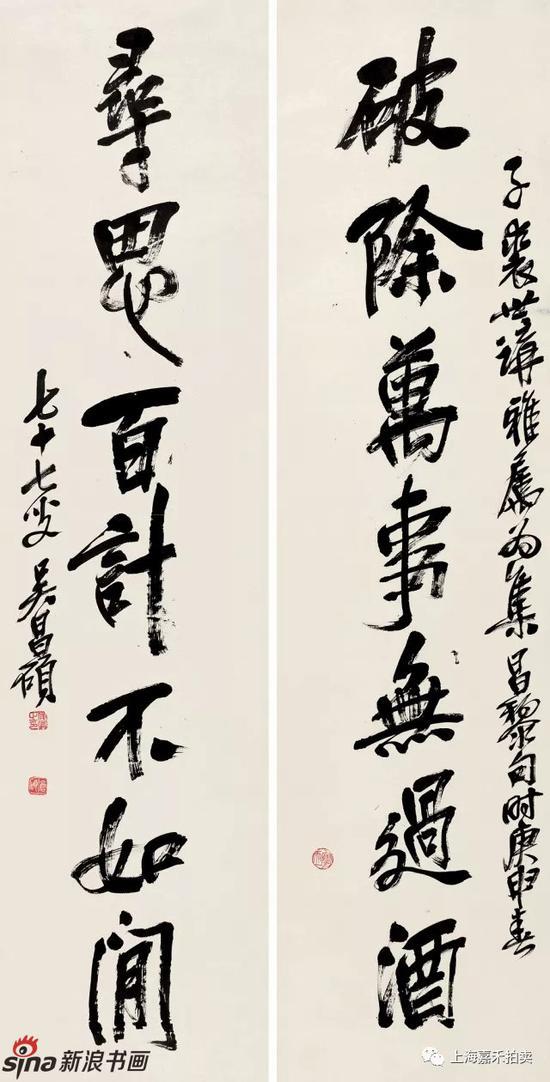 子裘世講雅屬為集昌黎句时庚申春
破除萬事無過酒
尋思百計不如閒
七十七叟吳昌碩
sina新浪书画
上海嘉禾拍卖